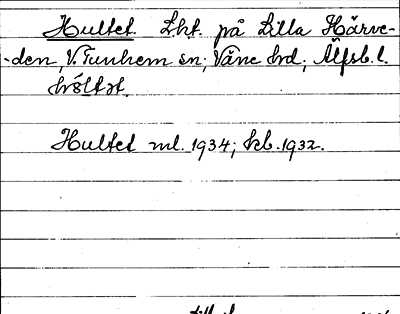 Hultet. Lht. på Lilla Härve-
-den, V. Tunhem sn; Väne hrd; Älfsb. l.
Hultet ml. 1934; kb. 1932.